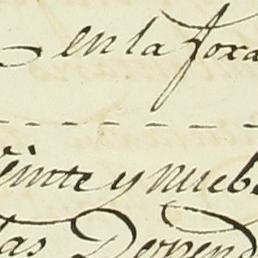 en la fora
Veinte y nueb
las Depend